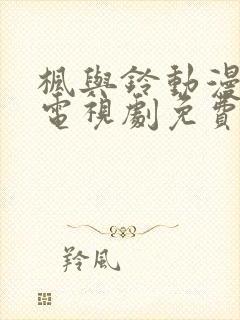 楓與鈴動漫
電視劇免費
羚風